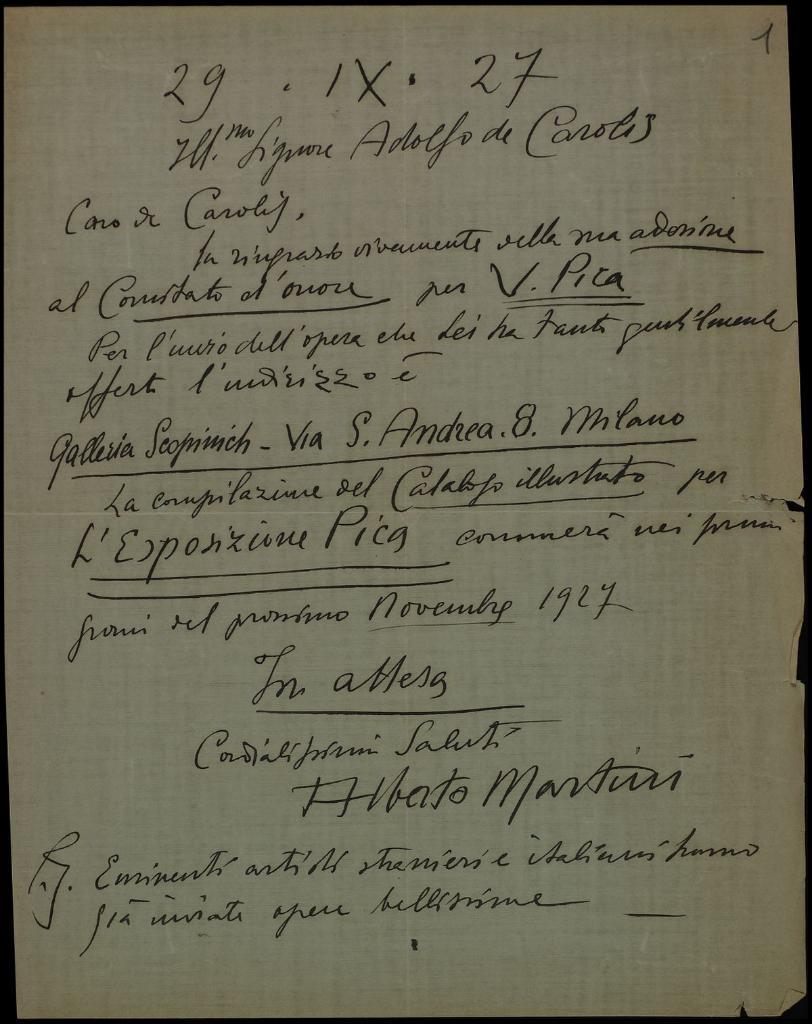 1
29 . IX . 27
Ill.mo Signore Adolfo de Carolis
Caro de Carolis,
La ringrazio vivamente della sua adesione
al Comitato d'onore per V. Pica
Per l'invio dell'opera che Lei ha tanto gentilmente
offerto l'indirizzo è
Galleria Scopinich - Via S. Andrea. 8. Milano
La compilazione del Catalogo illustrato per
L'Esposizione Pica comincerà nei primi
giorni del prossimo Novembre 1927
In attesa
Cordialissimi Saluti
Alberto Martini
P.S. Eminenti artisti stranieri e italiani hanno
già inviate opere bellissime —